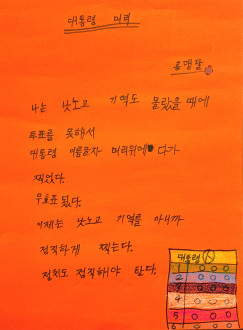 대통령 머리
홍맹달
나는 낫노고 기역도 몰랐을 때에
투표를 못해서
대통령 이름글자 머리위에 다가
찍었다.
무효표 됐다.
이제는 낫노고 기역를 아니까
정직하게 찍는다.
정치도 정직해야 한다.
대통령
1
2
3
4
5
6